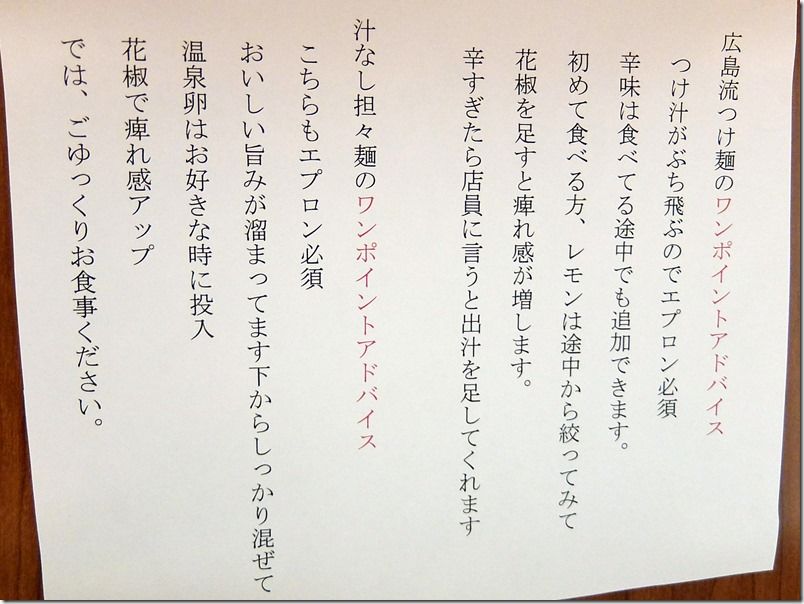 広島流つけ麺のワンポイントアドバイス
つけ汁がぶち飛ぶのでエプロン必須
辛味は食べてる途中でも追加できます。
初めて食べる方、レモンは途中から絞ってみて
花椒を足すと痺れ感が増します。
辛すぎたら店員に言うと出汁を足してくれます
汁なし担々麺のワンポイントアドバイス
こちらもエプロン必須
おいしい旨みが溜まってます下からしっかり混ぜて
温泉卵はお好きな時に投入
花椒で痺れ感アップ
では、ごゆっくりお食事ください。